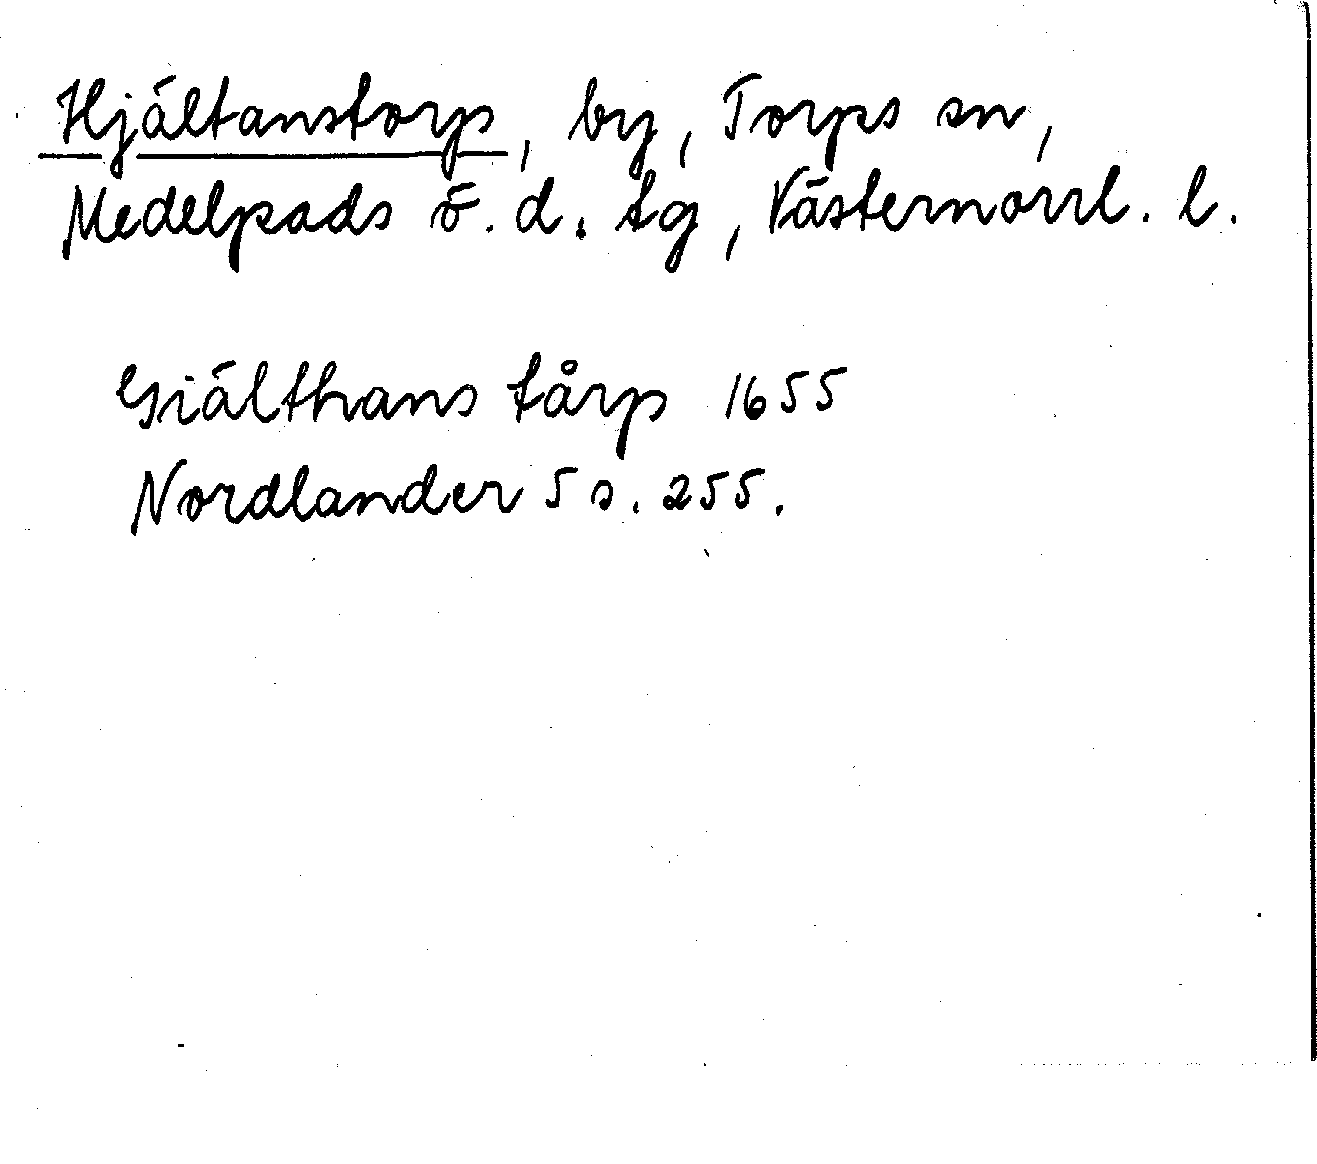 Hjältanstorp, by, Torps sn,
Medelpads ö. d. tg, Västernorrl. l.
Giälthans tårp 1655
Nordlander 5 s. 255.